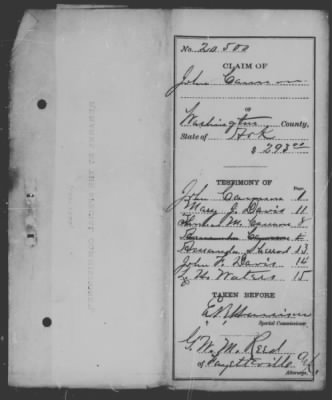 No. 20,500
CLAIM OF
John Cannon
OF
Washington County,
State of Ark
$ 293.00
TESTIMONY OF
Page.
John Cannon 1
Mary J. Davis 11
M. Cannon 8
13
John F. Davis 14
Waters 15
TAKEN BEFORE
Special Commissioner.
G. W. M. Reed
of Fayetteville Ark
Attorney.